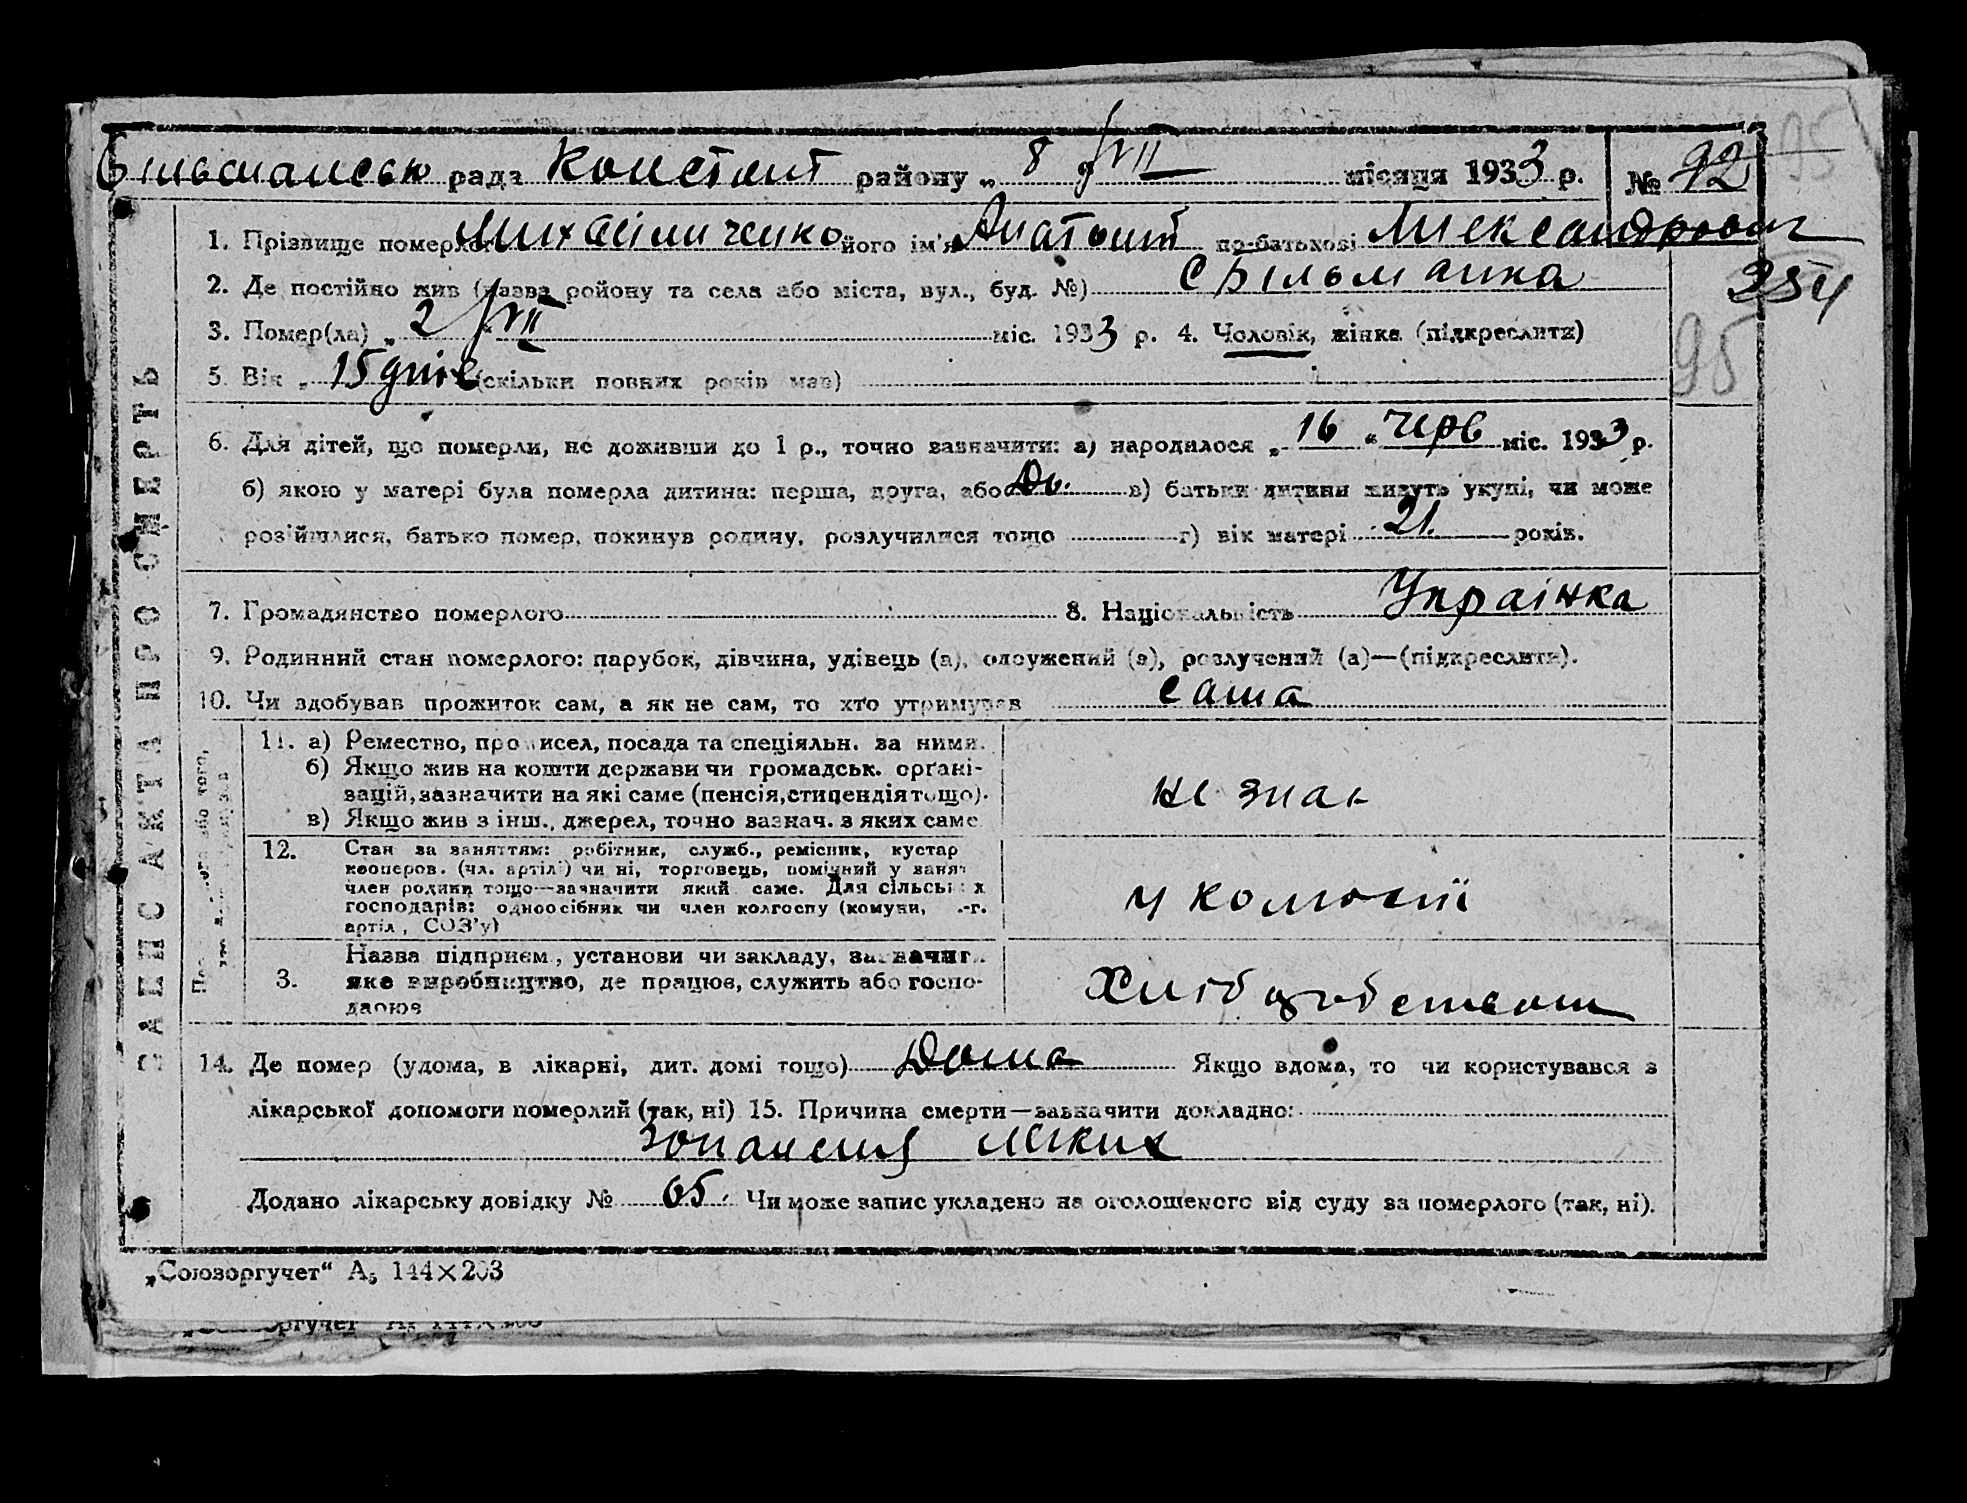 Більмансько рада Констант району „ 8 /VII місяця 1933 р. № 92
95
1. Прізвище померлого Михайличенко його ім'я Анатолій по-батькові Александрович
2. Де постійно жив (назва ройону та села або міста, вул., буд. №) с Більманка
354
3. Помер(ла) „ 2 /VII міс. 1933 р. 4. Чоловік, жінка (підкреслити)
95
5. Вік „ 15 днів (скільки повних років мав)
6. Для дітей, що померли, не доживши до 1 р., точно зазначити: а) народилося „ 16 “ черв міс. 1933 р.
б) якою у матері була померла дитина: перша, друга, або в) батьки дитини живуть укупі, чи може
розійшлися, батько помер, покинув родину, розлучилися тощо г) вік матері 21. років.
7. Громадянство померлого 8. Національність Украінка
9. Родинний стан померлого: парубок, дівчина, удівець (а), одружений (а), розлучений (а)—(підкреслити).
10. Чи здобував прожиток сам, а як не сам, то хто утримував сама
ЗАПИС АКТА ПРО СМЕРТЬ
11. а) Ремество, промисел, посада та спеціяльн. за ними.
б) Якщо жив на кошти держави чи громадськ. органі-
зацій, зазначити на які саме (пенсія, стипендія тощо).
в) Якщо жив з інш., джерел, точно зазнач. з яких саме
не знає
12. Стан за заняттям: робітник, служб., ремісник, кустар
кооперов. (чл. артілі) чи ні, торговець, помічний у занят
член родини тощо—зазначити який саме. Для сільських
господарів: одноосібник чи член колгоспу (комуни, -г.
артіл, СОЗ'у)
у колгоспі
3. Назва підприєм., установи чи закладу, зазначит.
яке виробництво, де працює, служить або госпо-
дарює
14. Де помер (удома, в лікарні, дит. домі тощо) Дома Якщо вдома, то чи користувався з
лікарської допомоги померлий (так, ні) 15. Причина смерти—зазначити докладно:
легких
Додано лікарську довідку № 65. Чи може запис укладено на оголошеного від суду за померлого (так, ні).
„Союзоргучет“ А5 144×203